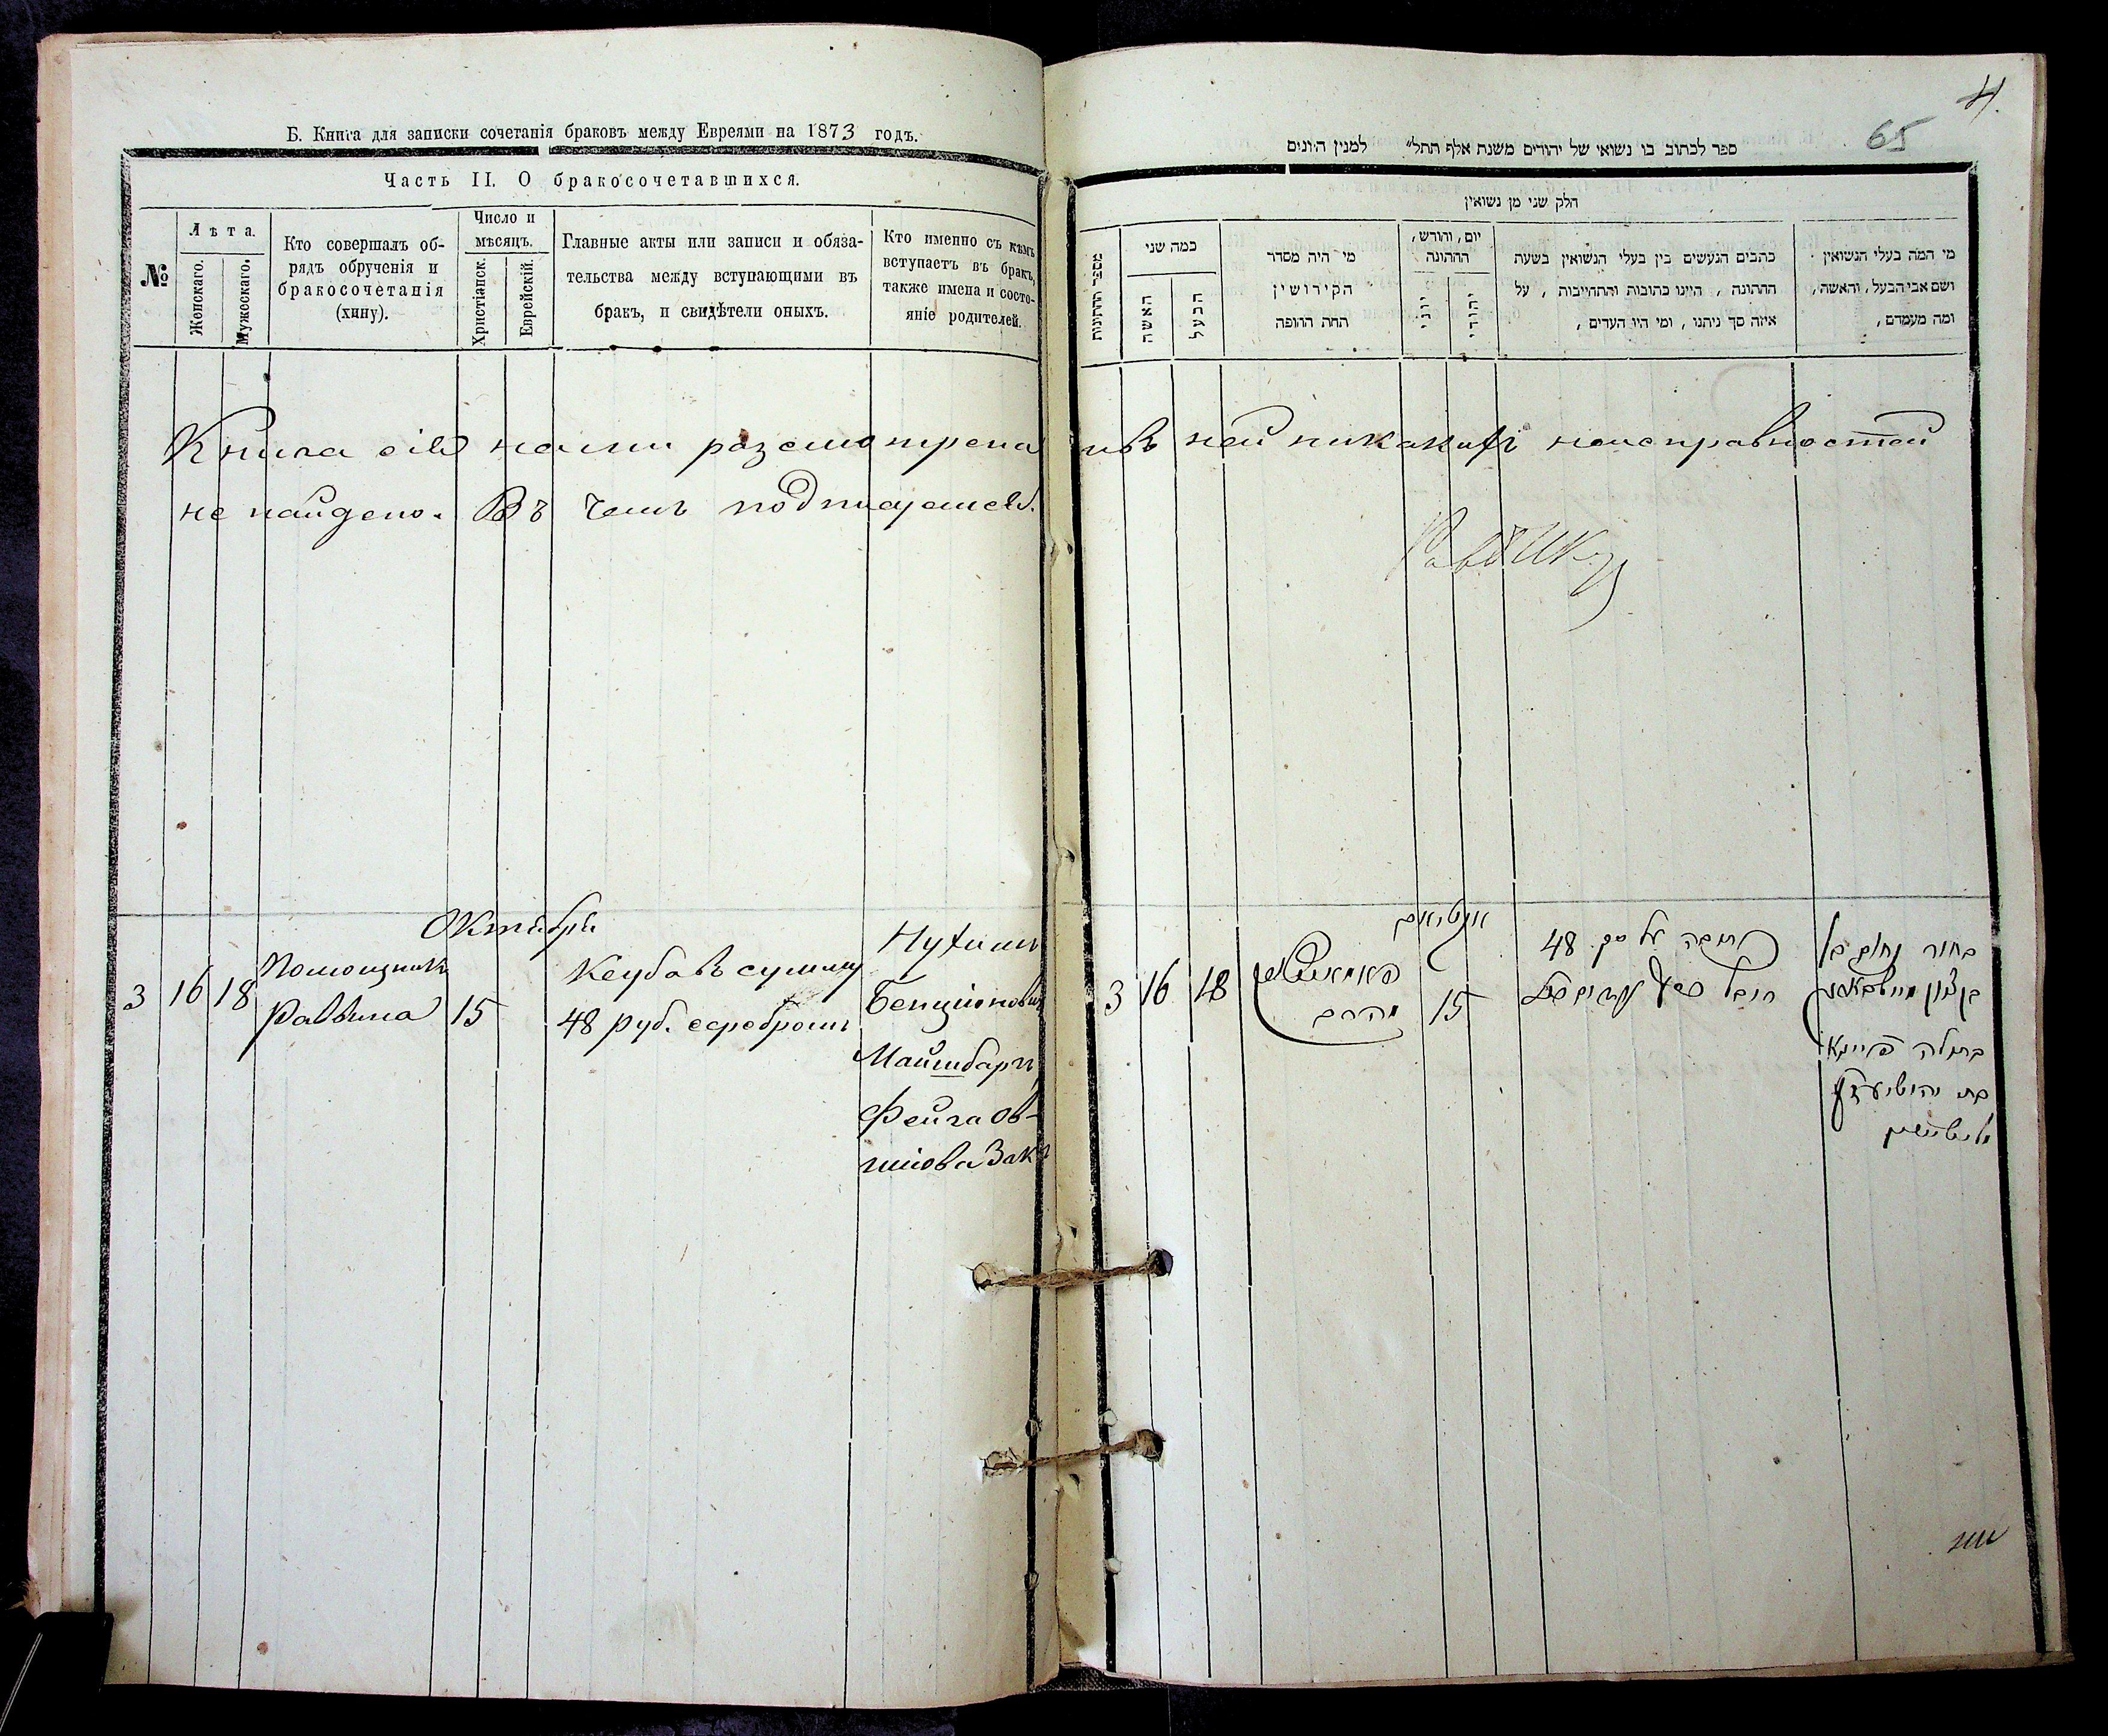 Б. Книга для записки сочетанія браковъ между Евреями на 1873 годъ.
Часть II. О бракосочетавшихся.
№
Лѣта.
Женскаго.
Мужескаго.
Кто совершалъ об-
рядъ обрученія и
бракосочетанія
(хину).
Число и
мѣсяцъ.
Христіанск.
Еврейскій.
Главные акты или записи и обяза-
тельства между вступающими въ
бракъ, и свидѣтели оныхъ.
Кто именно съ кѣмъ
вступаетъ въ бракъ,
также имена и состо-
яніе родителей.
4
65
ספר לכתוב בו נשואי של יהודים משנת אלף תתל״ למנין היונים
חלק שני מן נשואין
מספר החתונות
כמה שני
האשה
הבעל
מי היה מסדר
הקידושין
תחת החופה
יום, וחודש,
החתונה
יוני
יהודי
כתבים הנעשים בין בעלי הנשואין בשעת
החתונה, היינו כתובות והתחייבות, על
איזה סך ניתנו, ומי היו העדים,
מי המה בעלי הנשואין
ושם אבי הבעל, והאשה,
ומה מעמדם,
Книга сія нами разсмотрена и въ ней никакихъ неисправностей
не найдено. Въ чемъ подписуемся.
Октября
3 16 18
Помощникъ
Раввина
15
Ксуба въ сумму
48 руб. серебромъ
Нухимъ
Бенціоновъ
Майшбаръ
Фейга Ов-
шіова Закъ
3 16 18
15
כתובה על סך 48
בחור נחום בן
בן ציון
בתולה פייגא
בת יהושיע